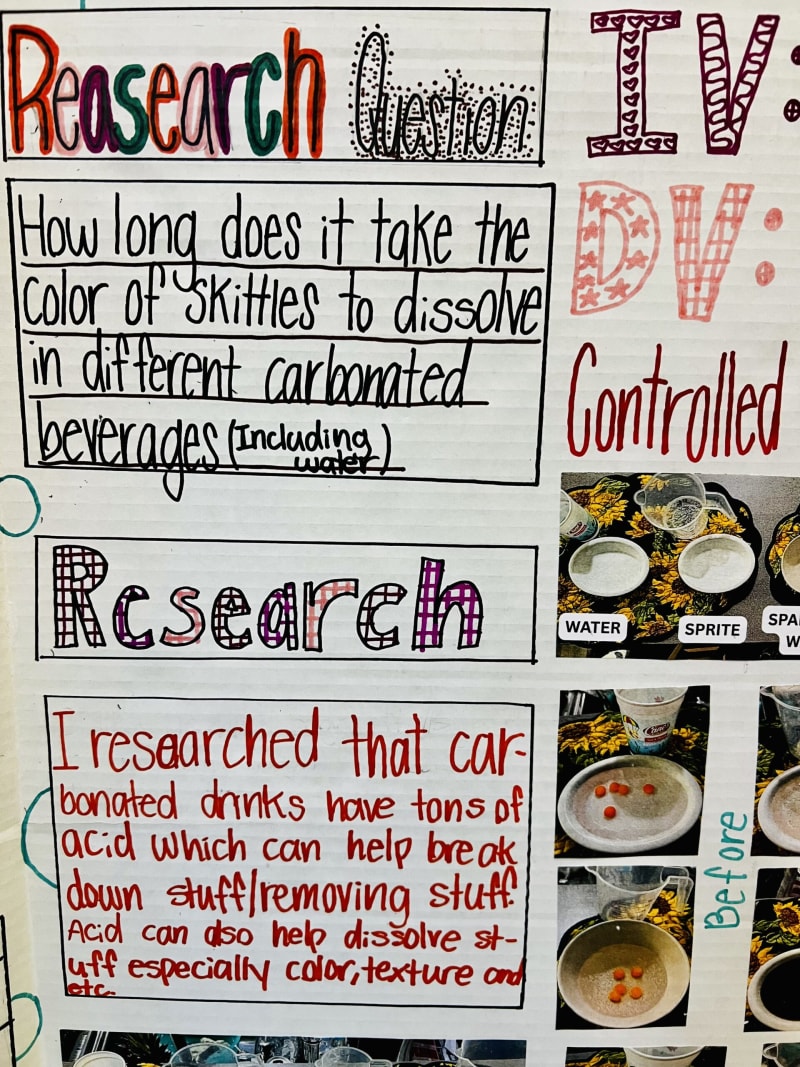 Reasearch Question
How long does it take the
color of skittles to dissolve
in different carbonated
beverages (Including
water)
Research
I researched that car-
bonated drinks have tons of
acid which can help break
down stuff/removing stuff.
Acid can also help dissolve st-
uff especially color, texture and
etc.
IV:
DV:
Controlled
WATER
SPRITE
SPA
W
Before